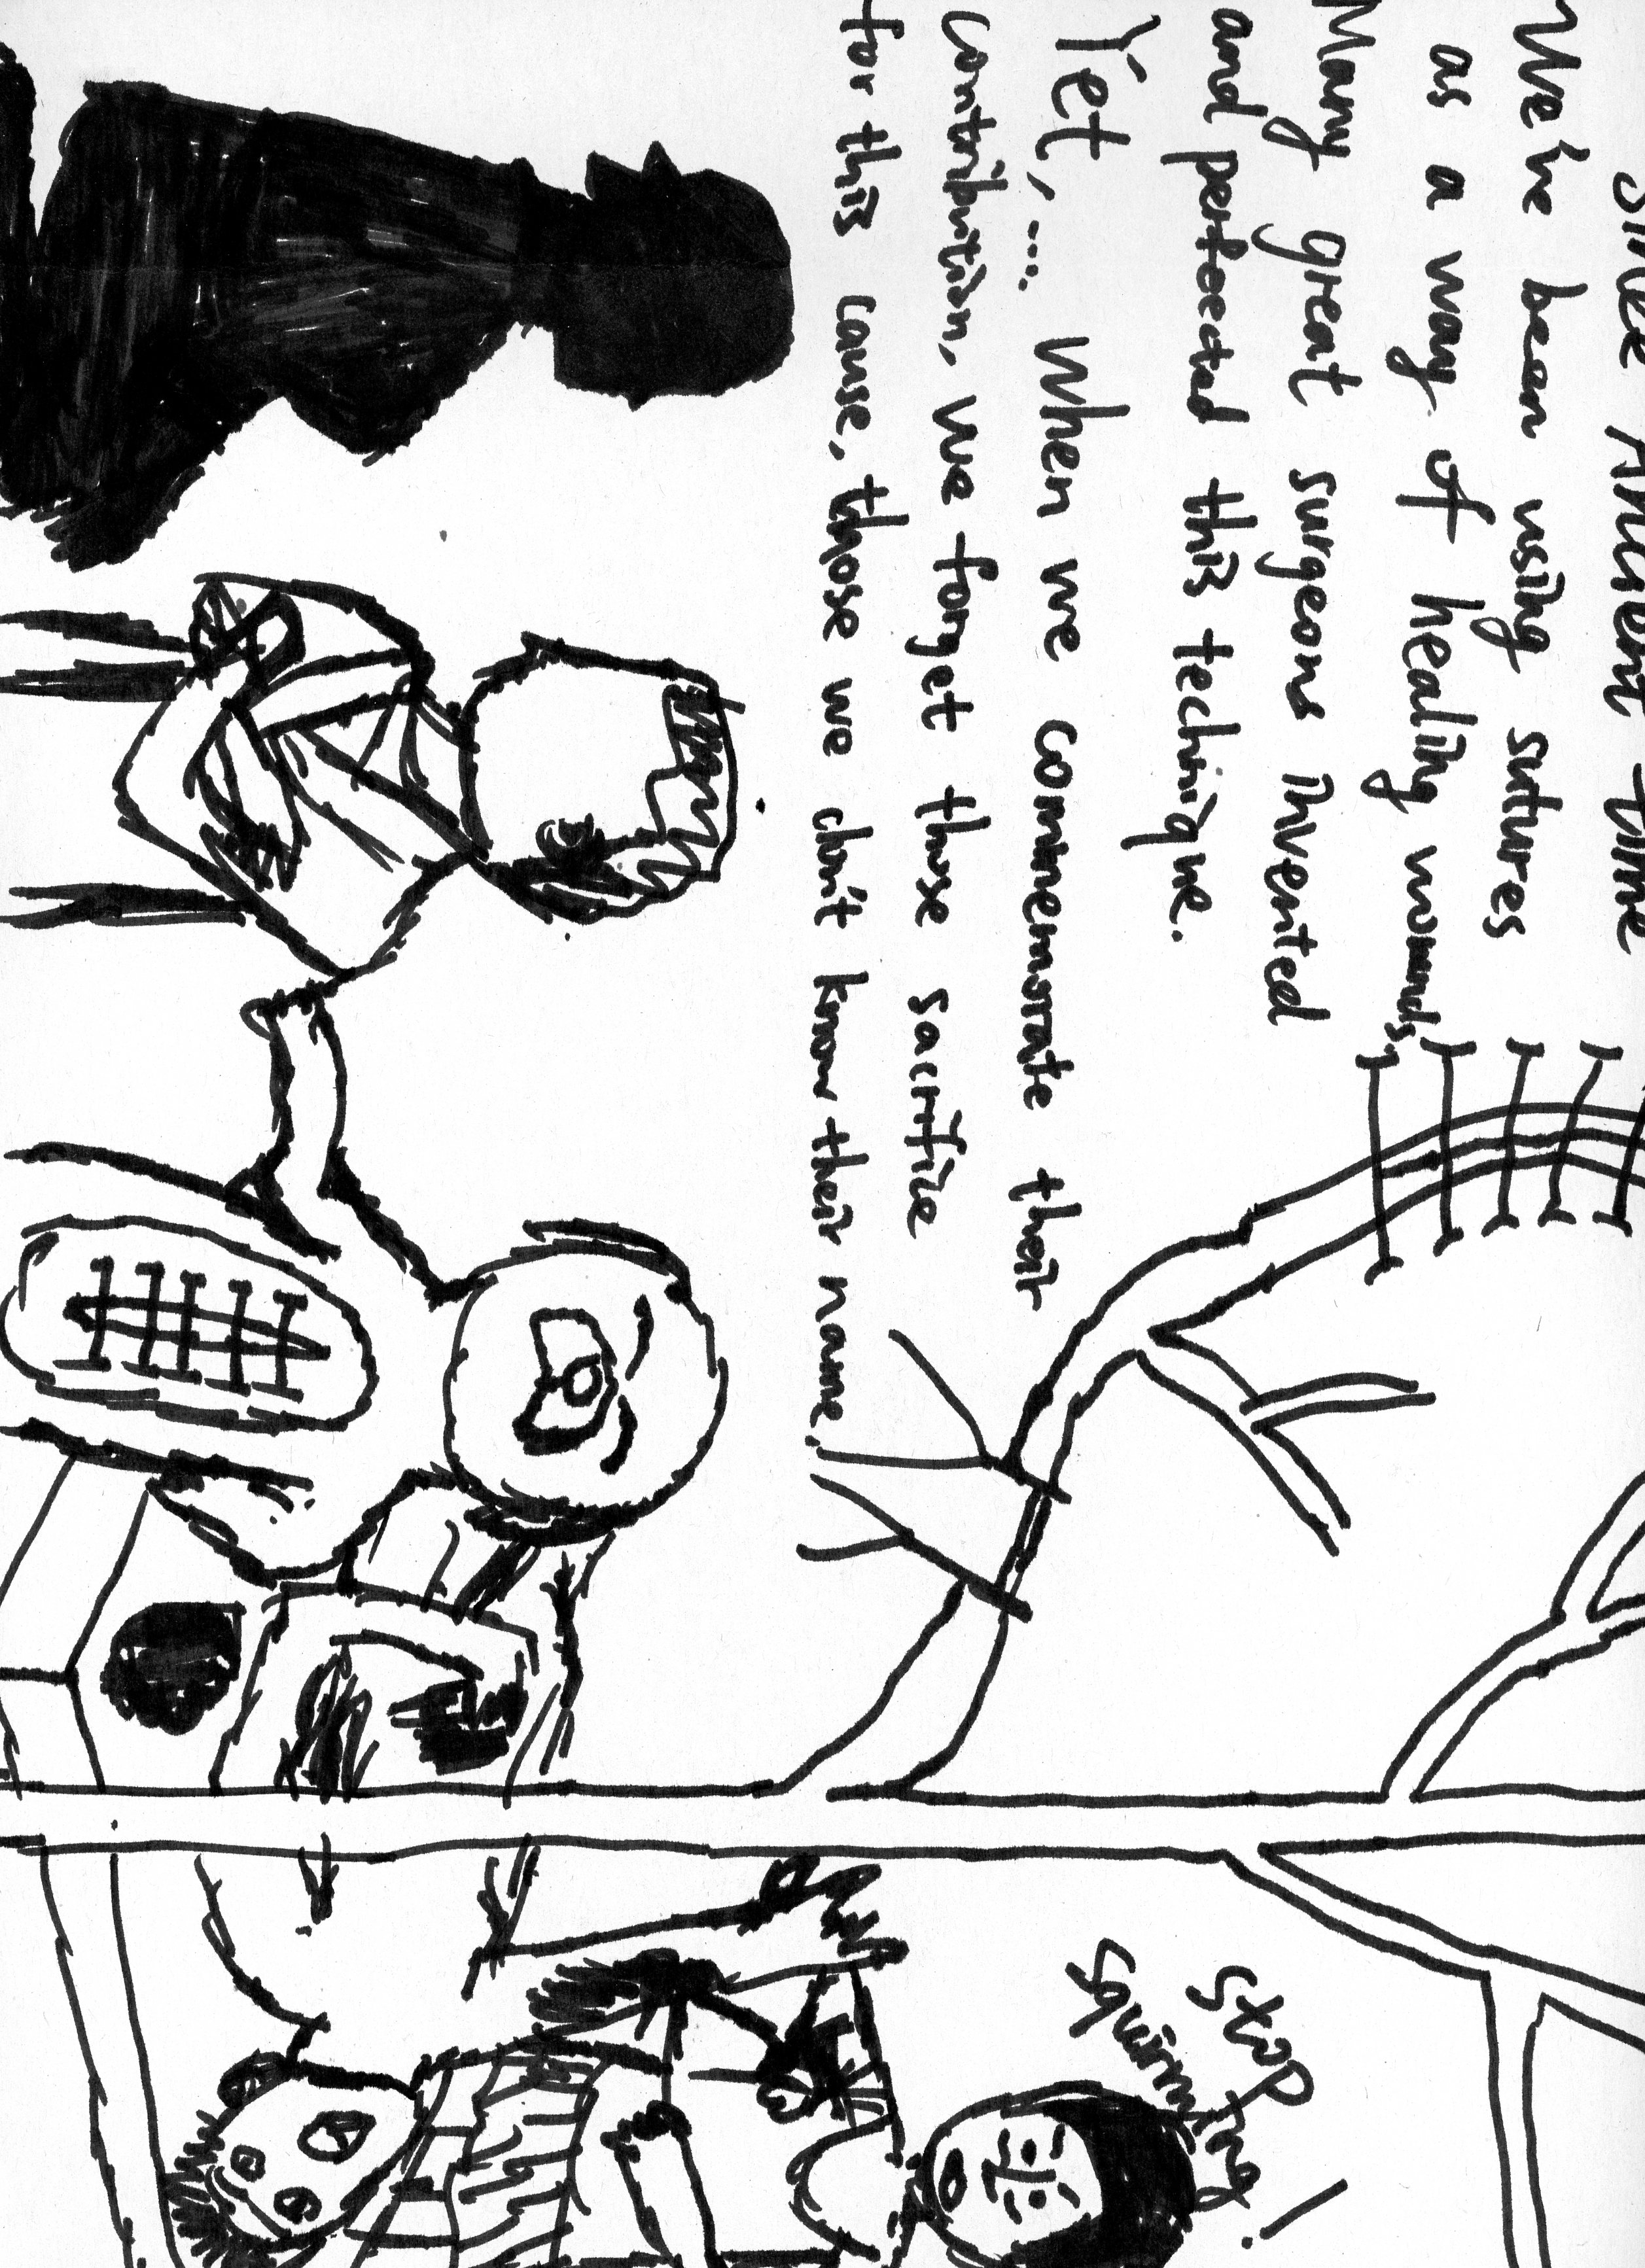 Since Ancient time
We've been using sutures
as a way of healing wounds,
Many great surgeons invented
and perfected this technique.
Yet,.... When we commemorate their
contribution, we forget those sacrifice
for this cause, those we don't know their name.
Stop
squirming!